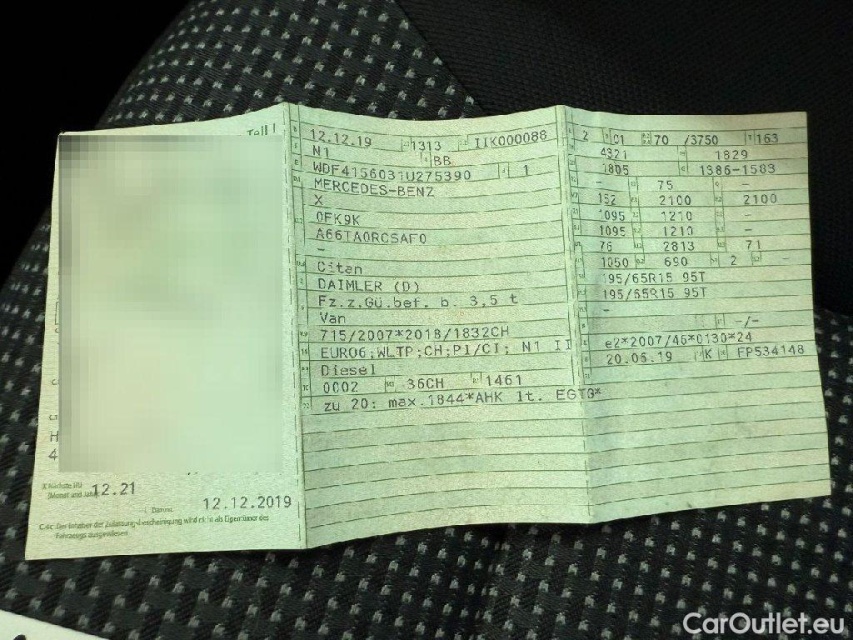 Teil I
X Nächste HU
(Monat und Jahr) 12.21
Datum
12.12.2019
C.4c: Der Inhaber der Zulassungsbescheinigung wird nicht als Eigentümer des
Fahrzeugs ausgewiesen.
H
4
12.12.19 1313 IIK000088
N1 BB
WDF4156031U275390 1
MERCEDES-BENZ
X
0FK9K
A66TA0RCSAF0
-
Citan
DAIMLER (D)
Fz.z.Gü.bef. b. 3,5 t
Van
715/2007*2018/1832CH
EURO6;WLTP;CH;PI/CI; N1 II
Diesel
0002 36CH 1461
zu 20: max.1844*AHK lt. EGTG*
2 01 70 /3750 163
4321 1829
1805 1386-1583
- 75 -
152 2100 2100
1095 1210 -
1095 1210 -
76 2813 71
1050 690 2 -
195/65R15 95T
195/65R15 95T
-
-/-
e2*2007/46*0130*24
20.06.19 K FP534148
CarOutlet.eu